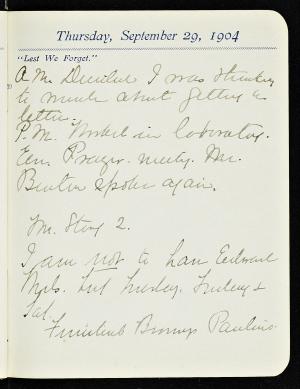 Thursday, September 29, 1904
"Lest We Forget."
A.M. Decided I was thinking
to much about getting a
letter.
P.M. Worked in laboratory.
Eve. Prayer meeting. Mr.
Benton spoke again.
I am not to have
but Tuesday, Friday &
Sat.
Finished Paulino